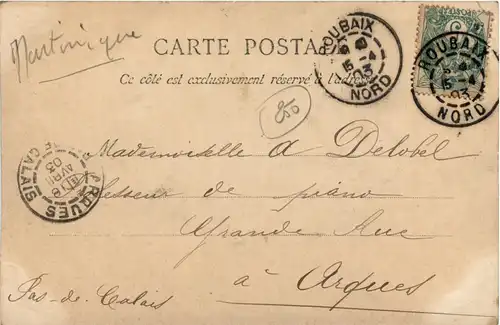 Martinique
CARTE POSTALE
Ce côté est exclusivement réservé à l'adresse
ROUBAIX
15 -4
03
NORD
ROUBAIX
15 -4
03
NORD
250
Mademoiselle A Delobel
fesseur de piano
Grande Rue
à Arques
Pas-de-Calais
ARQUES
AVRIL
03
CALAIS